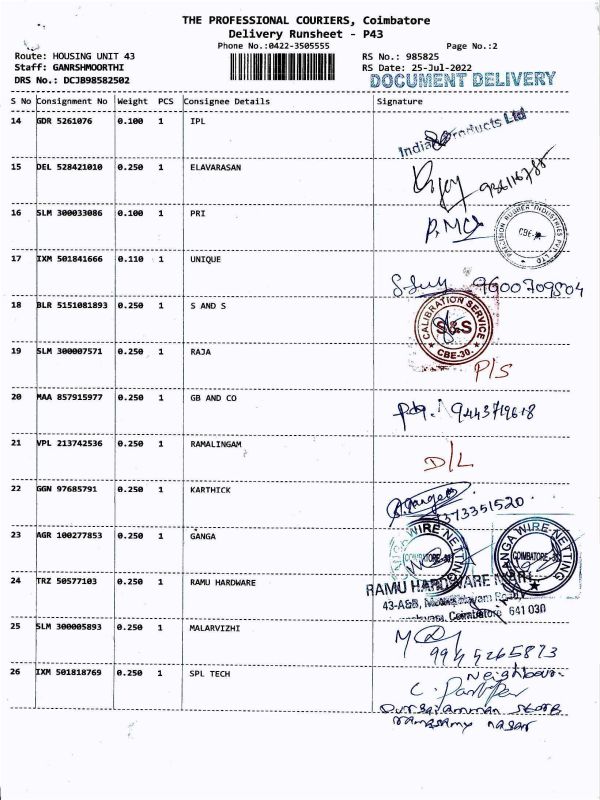 THE PROFESSIONAL COURIERS, Coimbatore
Delivery Runsheet - P43
Phone No.:0422-3505555
Page No.:2
Route: HOUSING UNIT 43
RS No.: 985825
Staff: GANRSHMOORTHI
RS Date: 25-Jul-2022
DRS No.: DCJB98582502
DOCUMENT DELIVERY
S No Consignment No Weight PCS Consignee Details Signature
14 GDR 5261076 0.100 1 IPL
Products Ltd
15 DEL 528421010 0.250 1 ELAVARASAN
16 SLM 300033086 0.100 1 PRI
PRECISION RUBBER INDUSTRIES PVT. LTD
CBE
17 IXM 501841666 0.110 1 UNIQUE
9600709804
18 BLR 5151081893 0.250 1 S AND S
CALIBRATION SERVICE
S&S
CBE-30.
19 SLM 300007571 0.250 1 RAJA
P/S
20 MAA 857915977 0.250 1 GB AND CO
9443719618
21 VPL 213742536 0.250 1 RAMALINGAM
D/L
22 GGN 97685791 0.250 1 KARTHICK
7373351520
23 AGR 100277853 0.250 1 GANGA
GANGA WIRE-NETTING
COIMBATORE
GANGA WIRE-NETTING
COIMBATORE
24 TRZ 50577103 0.250 1 RAMU HARDWARE
RAMU HARDWARE MART
43-A&B,
Coimbatore 641 030
25 SLM 300005893 0.250 1 MALARVIZHI
26 IXM 501818769 0.250 1 SPL TECH
Neighbour